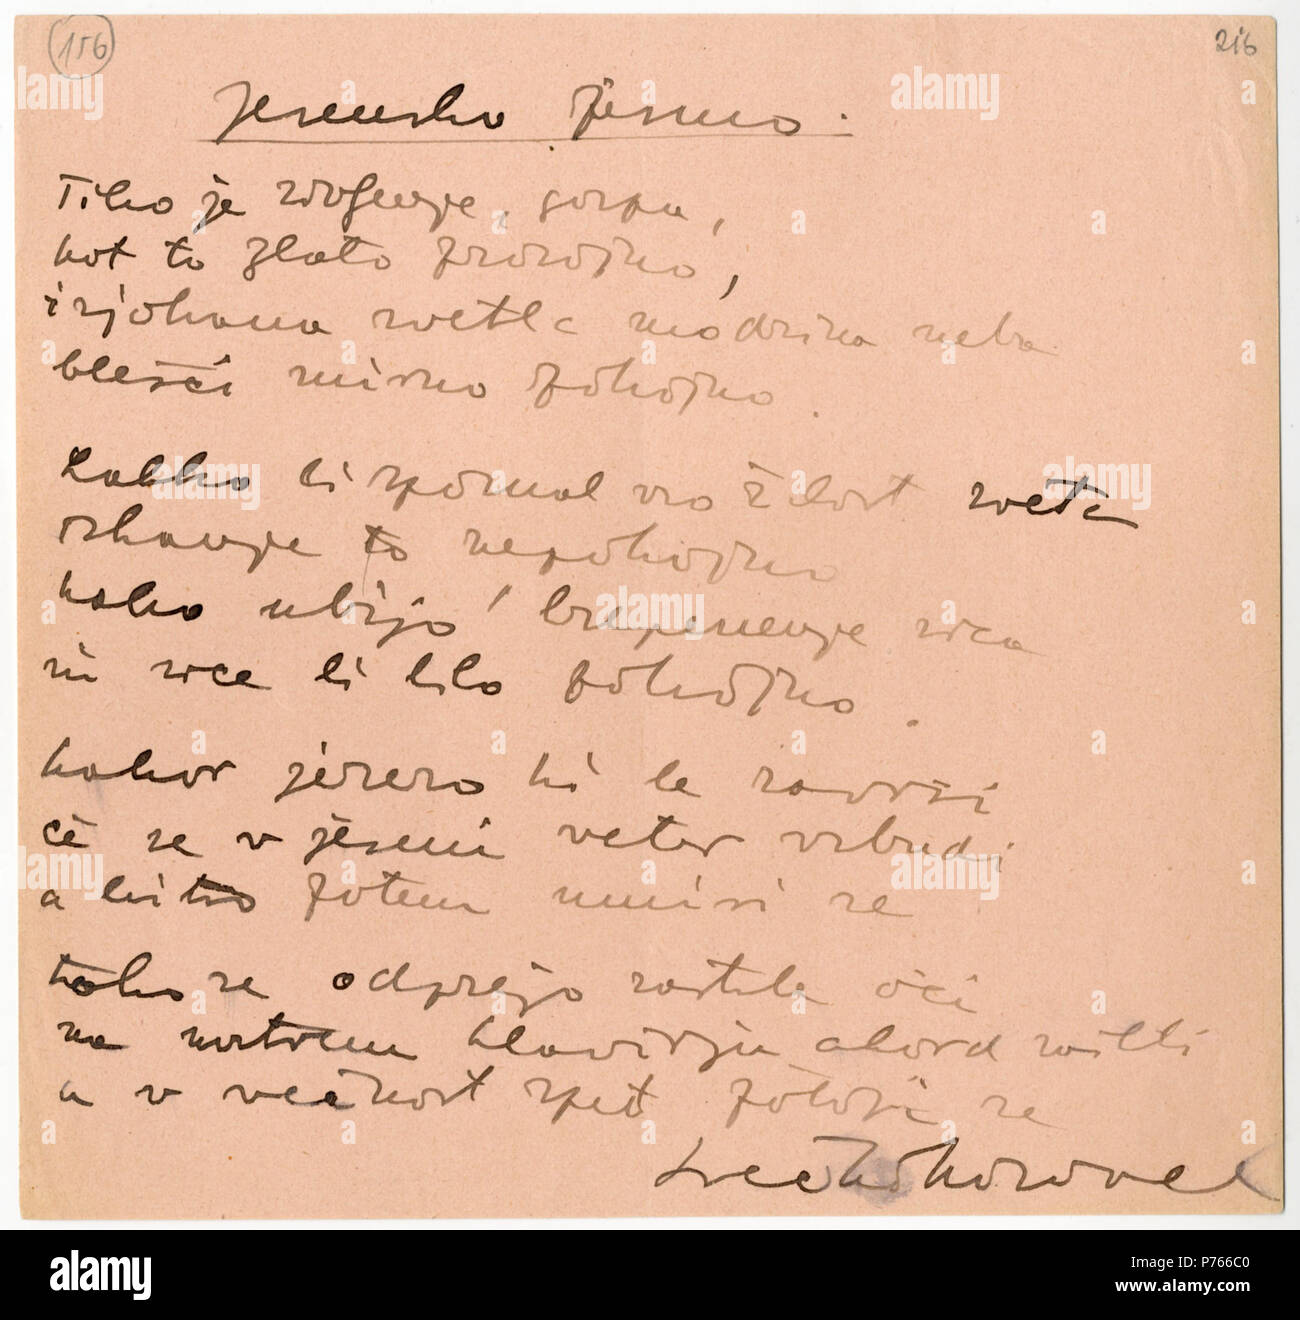 156
216
Jesenska pesmo.
Tiho je zvonenje, gospa,
kot to zlato prozojno,
izjokana svetla modrina neba
blešči mirno pokojno.
Lahko bi spoznal vso žalost sveta
iskanje to nepokojno
kako ubijo hrepenenje srca
ni srce bilo pokojno.
kakor jezero ki le završi
če se v jeseni veter vzbudi
a hitro potem umiri se
tako se odprejo zastrle oči
na notrem klavirju akord
a v večnost spet potopi se
Srečko Kosovel
alamy
Image ID: P766C0
www.alamy.com